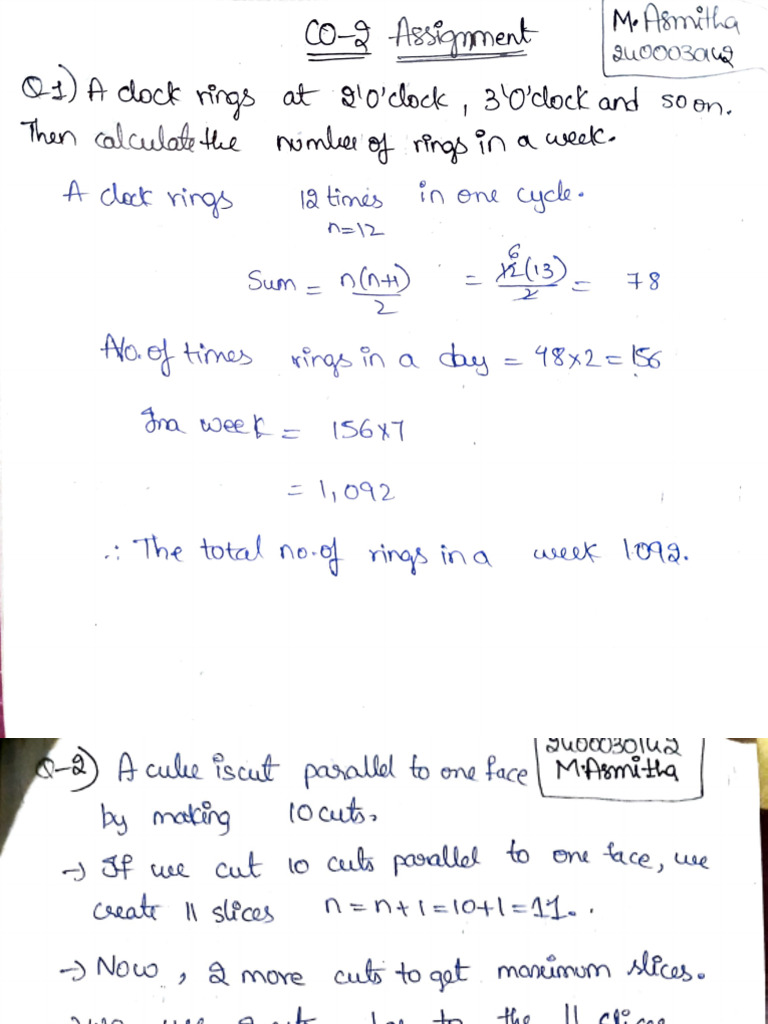 CO-2 Assignment
M. Asmitha
2400030142
Q1) A clock rings at 2'O'clock, 3'O'clock and so on.
Then calculate the number of rings in a week.
A clock rings 12 times in one cycle.
n=12
Sum = n(n+1)/2 = 6 12(13)/2 = 78
No. of times rings in a day = 48×2 = 156
In a week = 156×7
= 1,092
∴ The total no. of rings in a week 1092.
2400030142
M.Asmitha
Q-2) A cube is cut parallel to one face
by making 10 cuts.
→ If we cut 10 cuts parallel to one face, we
create 11 slices n = n+1 = 10+1 = 11.
→ Now, 2 more cuts to get maximum slices.
to the 11 slices